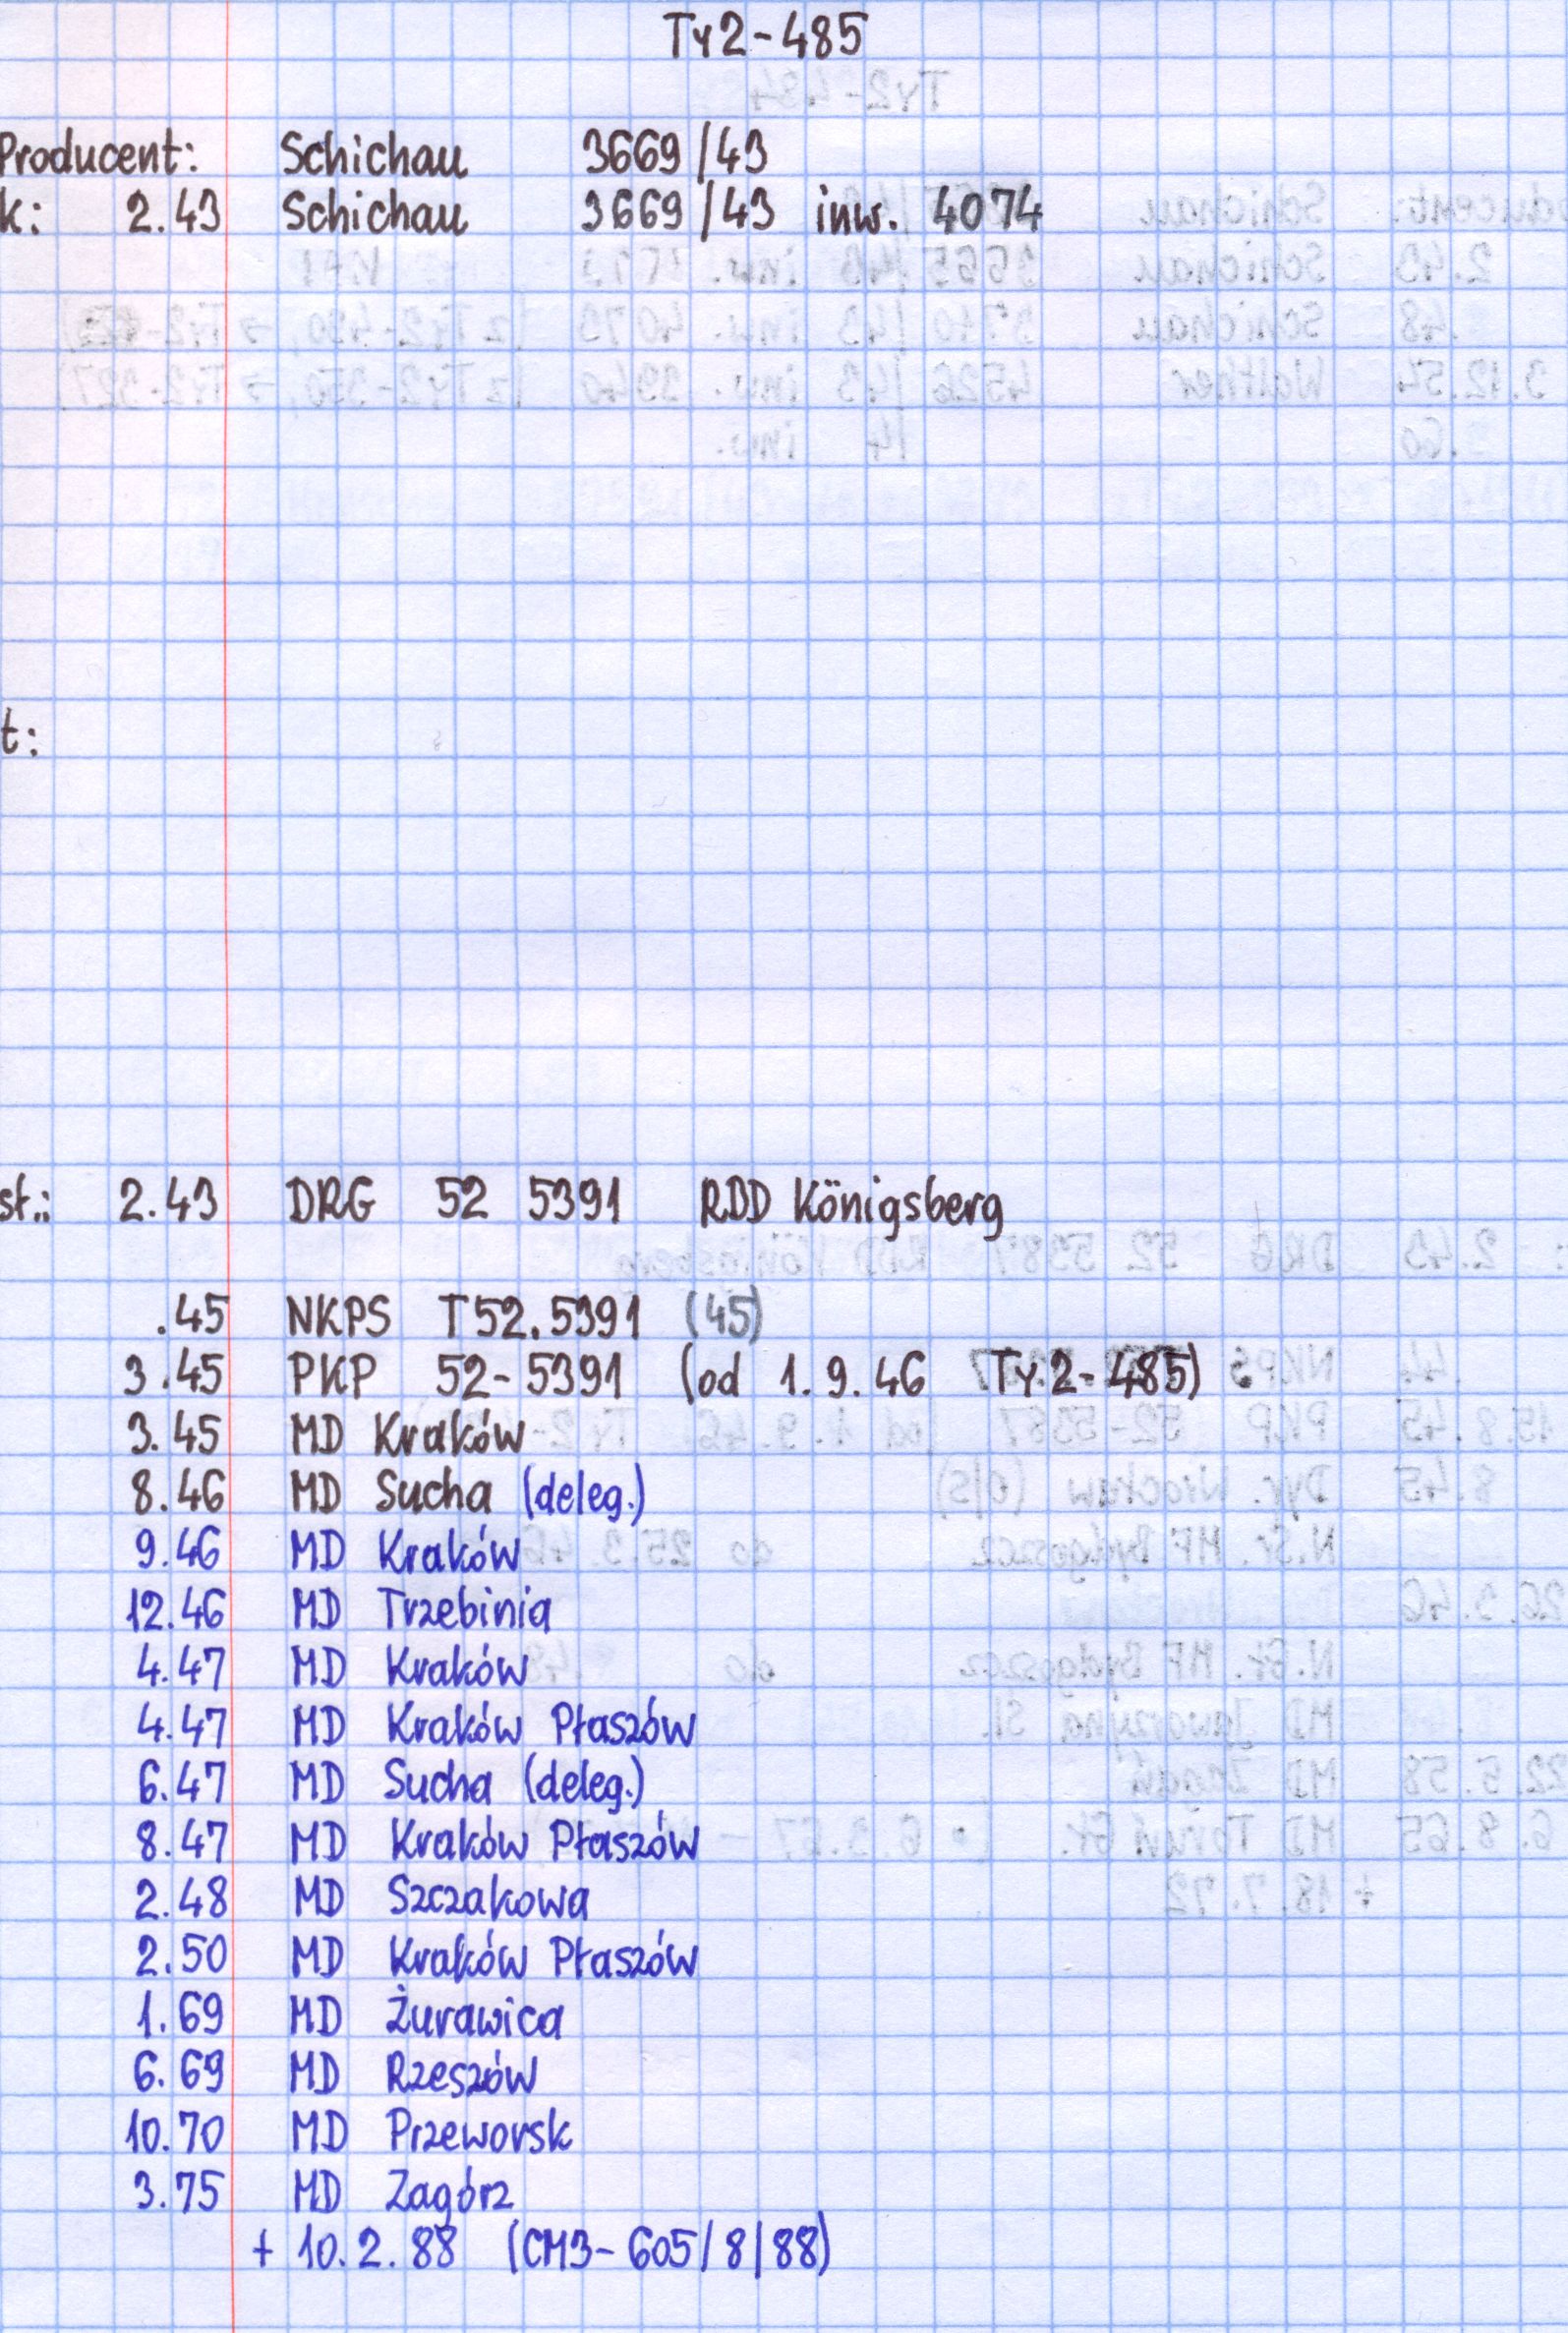 Ty2-485
Producent: Schichau 3669/43
k: 2.43 Schichau 3669/43 inw. 4074
t:
st.: 2.43 DRG 52 5391 RDD Königsberg
.45 NKPS T52.5391 (45)
3.45 PKP 52-5391 (od 1.9.46 Ty2-485)
3.45 MD Kraków
8.46 MD Sucha (deleg.)
9.46 MD Kraków
12.46 MD Trzebinia
4.47 MD Kraków
4.47 MD Kraków Płaszów
6.47 MD Sucha (deleg.)
8.47 MD Kraków Płaszów
2.48 MD Szczakowa
2.50 MD Kraków Płaszów
1.69 MD Żurawica
6.69 MD Rzeszów
10.70 MD Przeworsk
3.75 MD Zagórz
+ 10.2.88 (CM3-605/8/88)